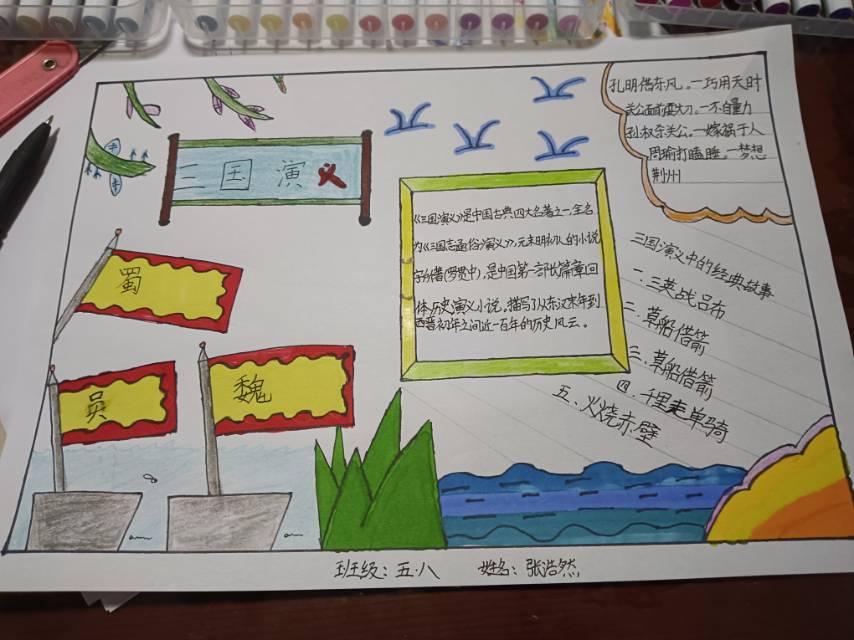 三国演义
孔明借东风。一巧用天时
关公面前耍大刀。一不自量力
孙权杀关公。一嫁祸于人
周瑜打瞌睡。一梦想
荆州
《三国演义》是中国古典四大名著之一,全名
为《三国志通俗演义》,元末明初人的小说
字分著(罗贯中),是中国第一部长篇章回
体历史演义小说,描写了从东汉末年到
西晋初年之间近一百年的历史风云。
三国演义中的经典故事
一.三英战吕布
二.草船借箭
三.草船借箭
四.千里走单骑
五、火烧赤壁
蜀
吴
魏
班级:五.八 姓名:张浩然